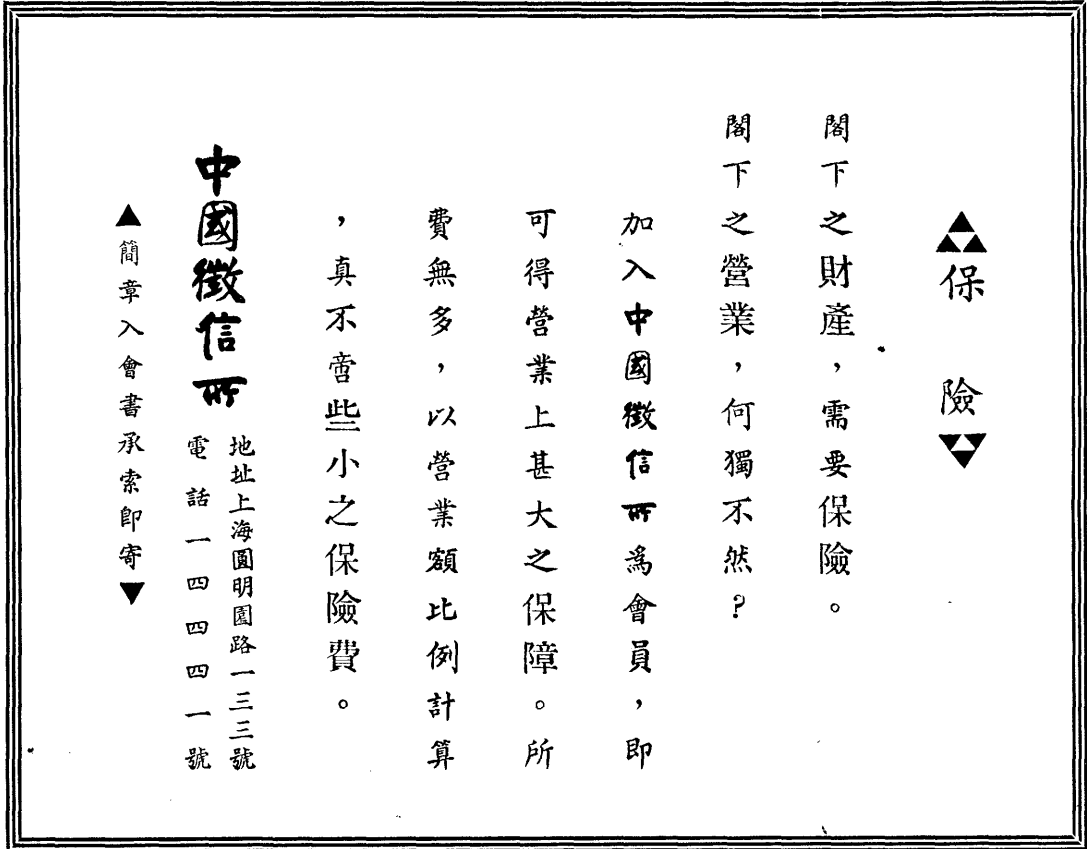 保險
閣下之財產，需要保險。
閣下之營業，何獨不然？
加入中國徵信所為會員，即
可得營業上甚大之保障。所
費無多，以營業額比例計算
，真不啻些小之保險費。
中國徵信所
地址上海圓明園路一三三號
電話一四四四一號
▲簡章入會書承索即寄▼